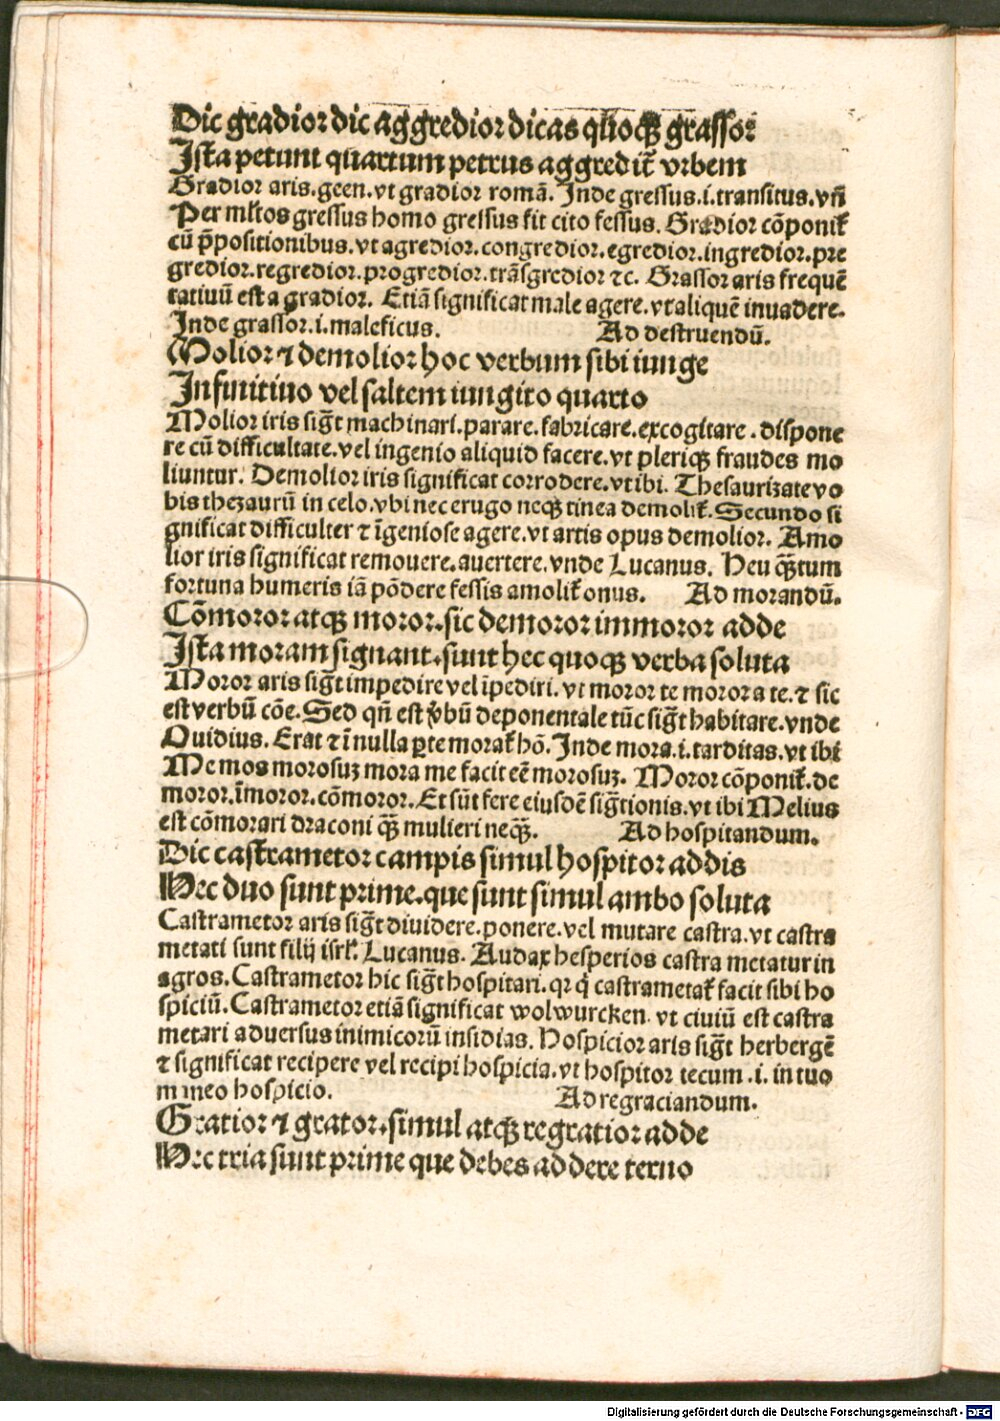 Dic gradior dic aggredior dicas qñoqꝫ grassor
Ista petunt quartum petrus aggredit᷑ vrbem
Gradior aris.geen.vt gradior romā. Inde gressus.i.transitus.vñ
Per ml̃tos gressus homo gressus fit cito fessus. Gradior cōponit᷑
cū p̄positionibus.vt agredior.congredior.egredior.ingredior.pre
gredior.regredior.progredior.trāsgredior ⁊c. Grassor aris frequē
tatiuū est a gradior. Etiā significat male agere.vt aliquē inuadere.
Inde grassor.i.maleficus. Ad destruendū.
Molior ⁊ demolior hoc verbum sibi iunge
Infinitiuo vel saltem iungito quarto
Molior iris sig̃t machinari.parare.fabricare.excogitare.dispone
re cū difficultate.vel ingenio aliquid facere.vt pleriqꝫ fraudes mo
liuntur. Demolior iris significat corrodere.vt ibi. Thesaurizate vo
bis thezaurū in celo.vbi nec erugo neqꝫ tinea demolit᷑. Secundo si
gnificat difficulter ⁊ īgeniose agere.vt artis opus demolior. Amo
lior iris significat remouere.auertere.vnde Lucanus. Heu qꝫ̄tum
fortuna humeris iā pōdere fessis amolit᷑ onus. Ad morandū.
Cōmoror atqꝫ moror.sic demoror immoror adde
Ista moram signant.sunt hec quoqꝫ verba soluta
Moror aris sig̃t impedire vel īpediri.vt moror te moror a te.⁊ sic
est verbū cōe. Sed qñ est v̓bū deponentale tūc sig̃t habitare.vnde
Ouidius. Erat ⁊ ī nulla ꝑte morat᷑ hō. Inde mora.i.tarditas.vt ibi
Me mos morosuꝫ mora me facit eē morosuꝫ. Moror cōponit᷑.de
moror.īmoror.cōmoror. Et sūt fere eiusdē sig̃tionis.vt ibi Melius
est cōmorari draconi qꝫ̄ mulieri neqꝫ̄. Ad hospitandum.
Dic castrametor campis simul hospitor addis
Hec duo sunt prime.que sunt simul ambo soluta
Castrametor aris sig̃t diuidere.ponere.vel mutare castra.vt castra
metati sunt filij isrl̕. Lucanus. Audax hesperios castra metatur in
agros. Castrametor hic sig̃t hospitari.qr qͥ castrametat᷑ facit sibi ho
spiciū. Castrametor etiā significat wolwurcken. vt ciuiū est castra
metari aduersus inimicorū insidias. Hospicior aris sig̃t herbergē
⁊ significat recipere vel recipi hospicia.vt hospitor tecum.i. in tuo
m meo hospicio. Ad regraciandum.
Gratior ⁊ grator.simul atqꝫ regratior adde
Hec tria sunt prime que debes addere terno
Digitalisierung gefördert durch die Deutsche Forschungsgemeinschaft - DFG